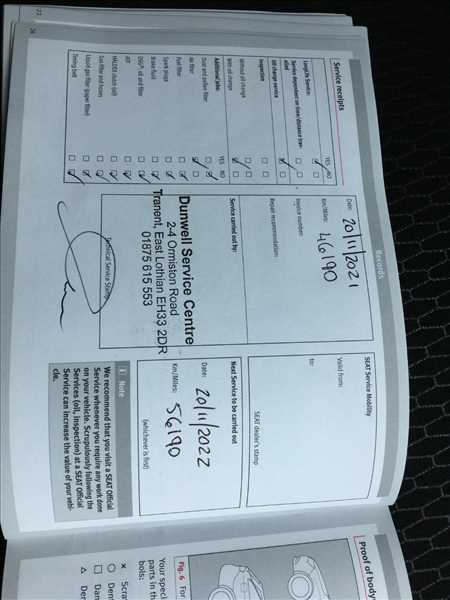 24
Records
Service receipts
YES NO
LongLife Service:
Service dependent on time/distance travelled
Oil change service
Inspection
Without oil change
With oil change
Additional jobs: YES NO
Dust and pollen filter
Air filter
Fuel filter
Spark plugs
Brake fluid
DSG®, oil and filter
ATF
HALDEX clutch (oil)
Gas filter and hoses
Liquid gas filter (paper filter)
Timing belt
Date: 20/11/2021
Km/Miles: 46190
Invoice number:
Repair recommendation:
Service carried out by:
Dunwell Service Centre
2-4 Ormiston Road
Tranent, East Lothian EH33 2DR
01875 615 553
Technical Service Stamp
SEAT Service Mobility
Valid from:
to:
SEAT dealer's stamp
Next Service to be carried out
Date: 20/11/2022
Km/Miles: 56190
(whichever is first)
i Note
We recommend that you visit a SEAT Official
Service whenever you require any work done
on your vehicle. Scrupulously following the
Services (oil, inspection) at a SEAT Official
Service can increase the value of your vehi-
cle.
Proof of body
Fig. 6 For
Your spec
parts in th
bols:
× Scra
○ Den
□ Dan
△ Der